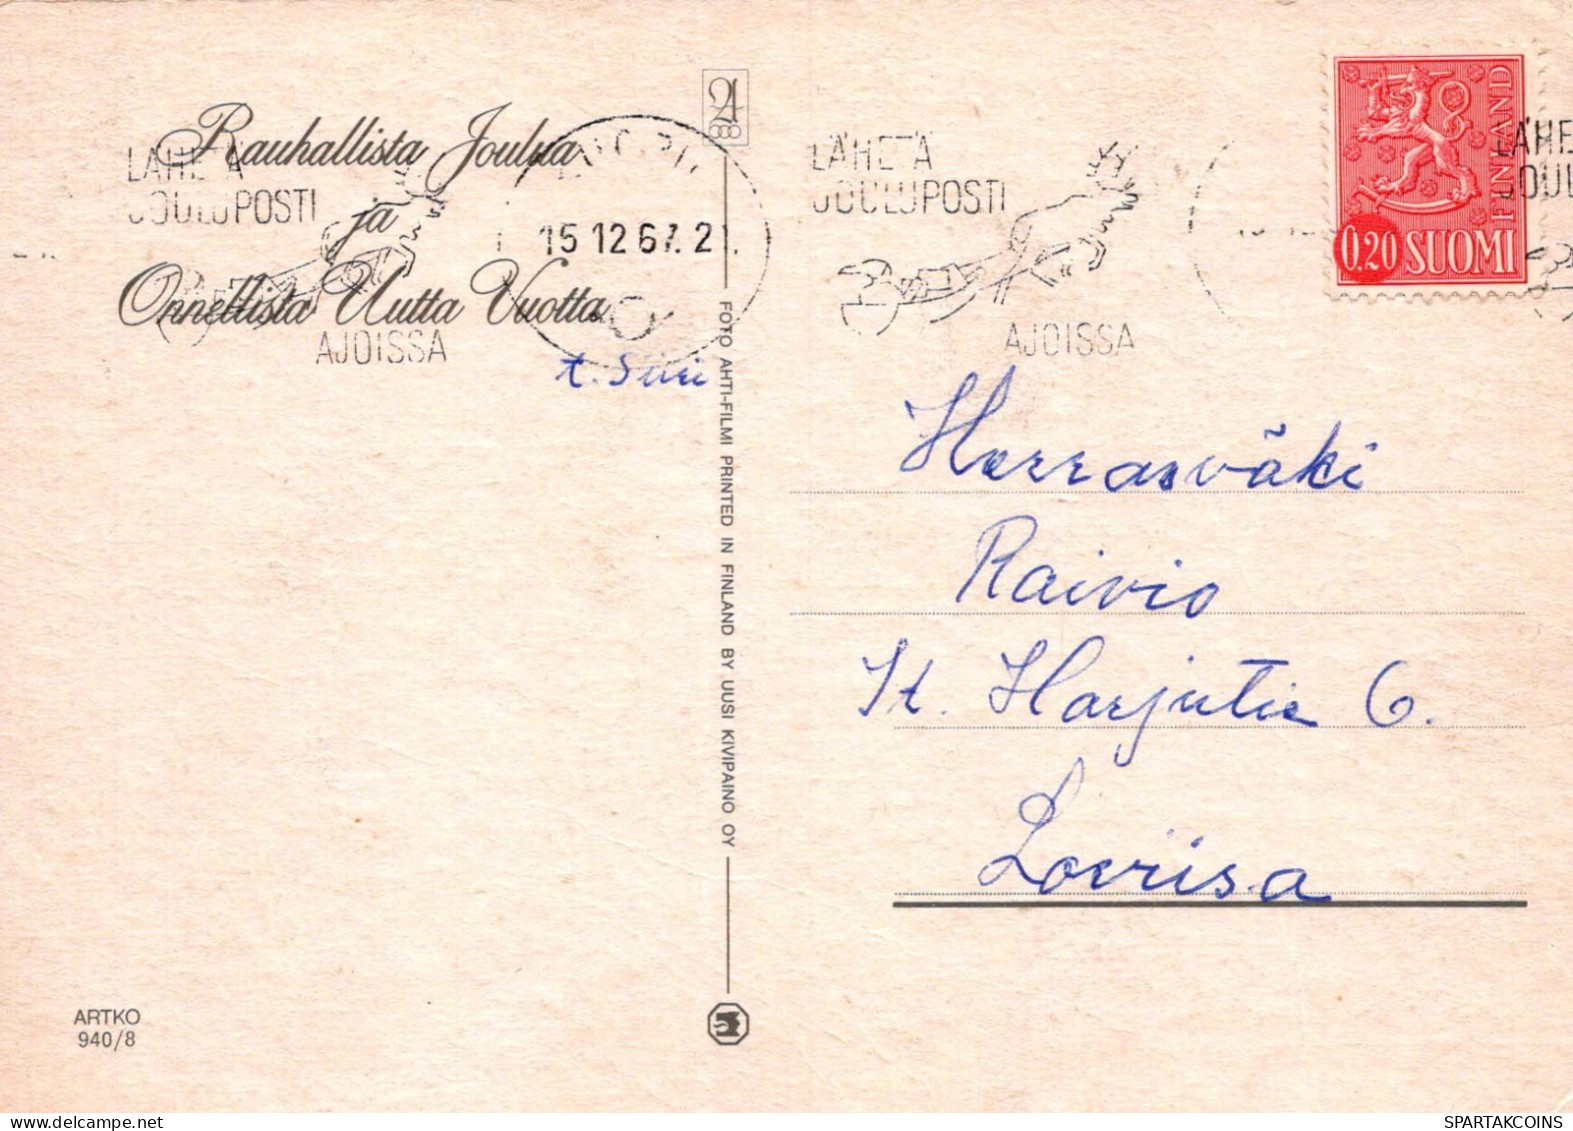 Rauhallista Joulua
ja
Onnellista Uutta Vuotta
LÄHETÄ
JOULUPOSTI
AJOISSA
15.12.67.21
t. Siiri
FOTO AHTI-FILMI PRINTED IN FINLAND BY UUSI KIVIPAINO OY
LÄHETÄ
JOULUPOSTI
AJOISSA
FINLAND
0,20 SUOMI
LÄHE
JOUL
Herrasväki
Raivio
It. Harjutie 6.
Loviisa
ARTKO
940/8
SPARTAKCOINS